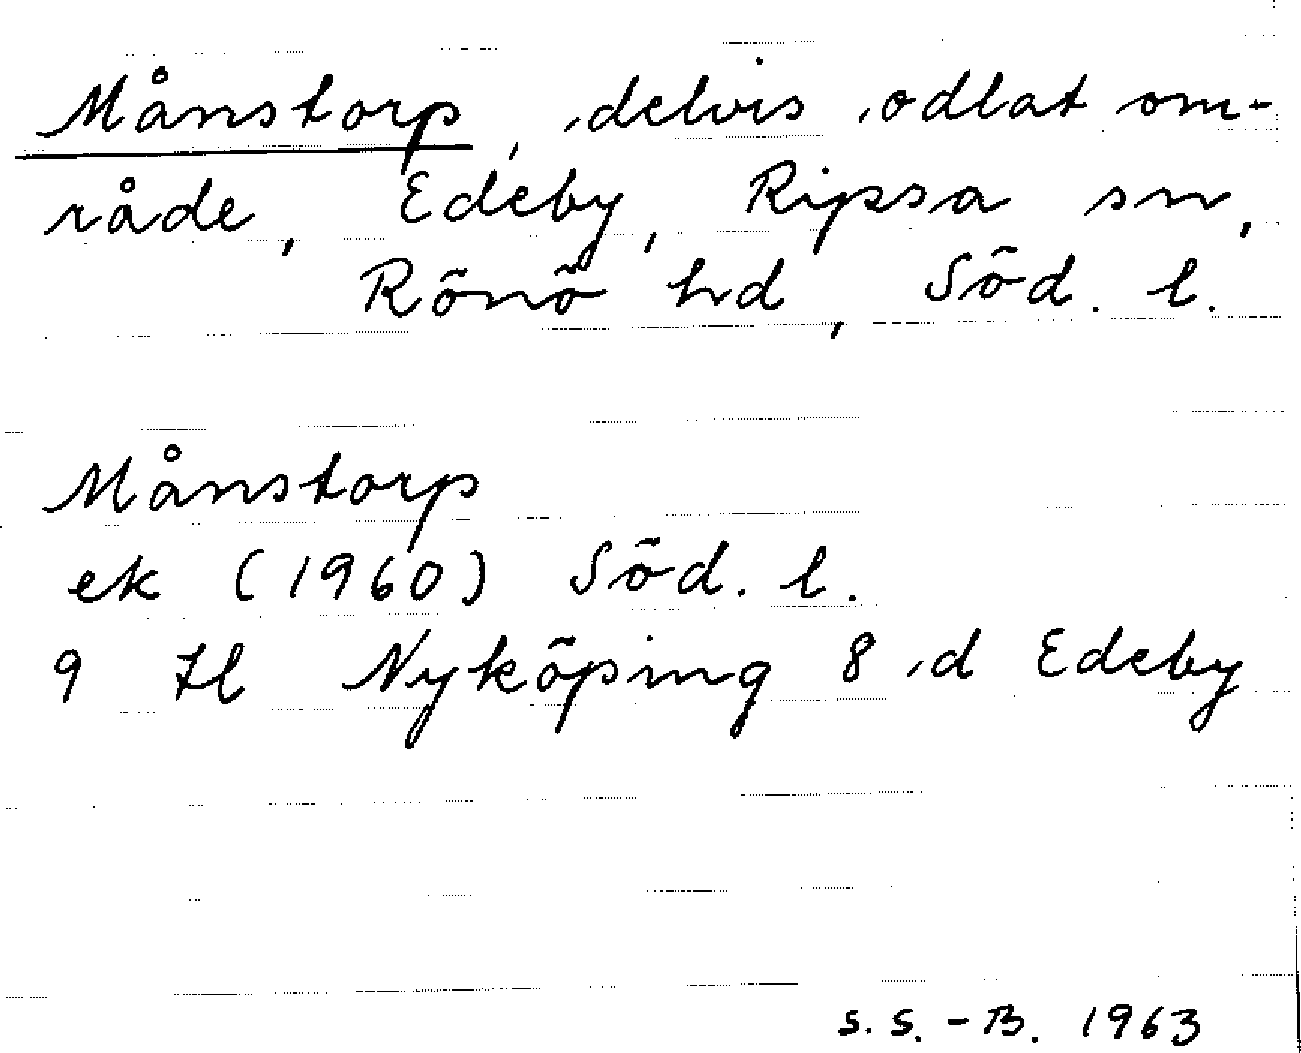 Månstorp, delvis odlat om-
råde, Edeby, Ripsa sn,
Rönö hd, Söd. l.
Månstorp
ek (1960) Söd. l.
9 Hl Nyköping 8 d Edeby
S.S.-B. 1963